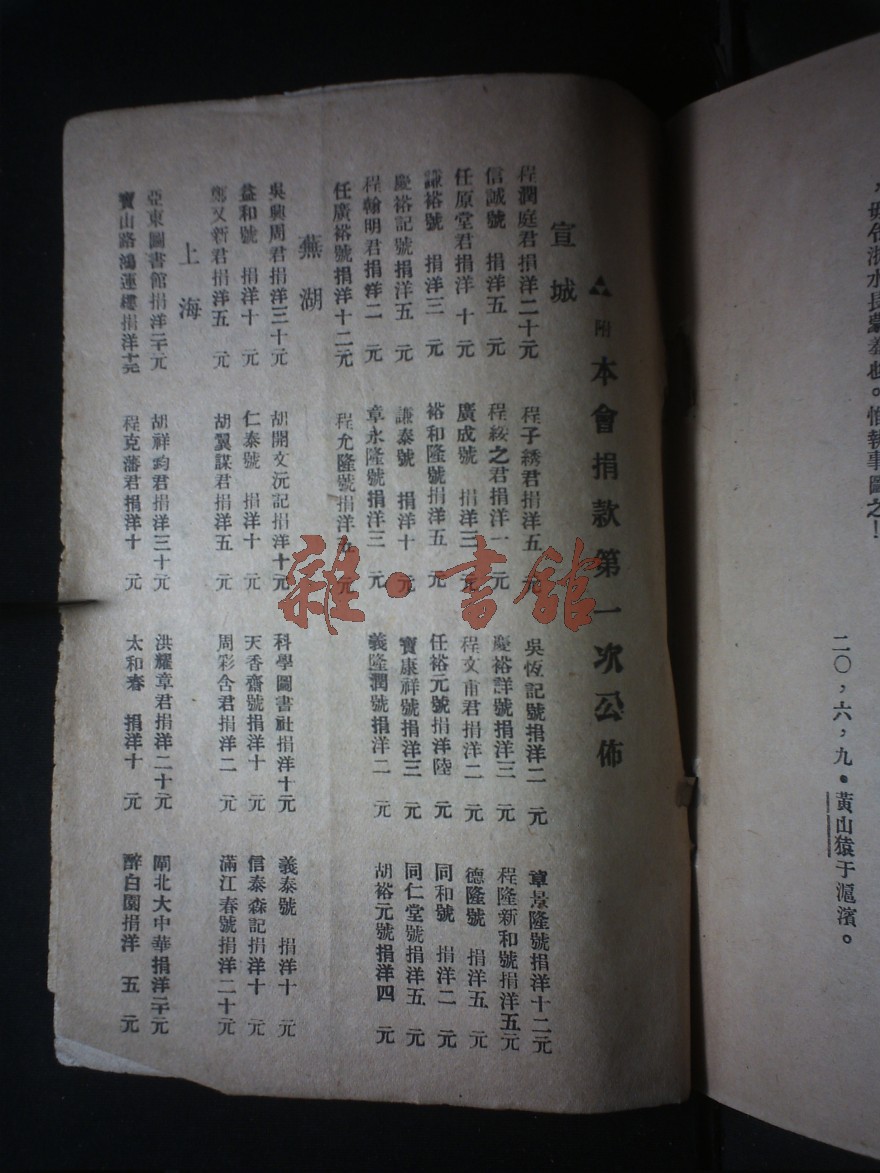 毋令浙水長蒙羞也。惟執事圖之！
二〇，六，九・黃山猿于滬濱。
附 本會捐款第一次公佈
宣城
程潤庭君捐洋二十元 程子綉君捐洋五 元 吳恆記號捐洋二 元 章景隆號捐洋十二元
信誠號 捐洋五 元 程綏之君捐洋一 元 慶裕詳號捐洋三 元 程隆新和號捐洋五元
任原堂君捐洋 十 元 廣成號 捐洋三 元 程文甫君捐洋二 元 德隆號 捐洋五 元
謙裕號 捐洋三 元 裕和隆號捐洋五 元 任裕元號捐洋陸 元 同和號 捐洋二 元
慶裕記號捐洋五 元 謙泰號 捐洋十 元 寶康祥號捐洋三 元 同仁堂號捐洋五 元
程翰明君捐洋二 元 章永隆號捐洋三 元 義隆潤號捐洋二 元 胡裕元號捐洋四 元
任廣裕號捐洋十二元 程允隆號捐洋五 元
蕪湖
吳興周君捐洋三十元 胡開文沅記捐洋十元 科學圖書社捐洋十元 義泰號 捐洋十 元
益和號 捐洋十 元 仁泰號 捐洋十 元 天香齋號捐洋十 元 信泰森記捐洋十 元
鄭又新君捐洋五 元 胡翼謀君捐洋五 元 周彩含君捐洋二 元 滿江春號捐洋二十元
上海
亞東圖書館捐洋二十元 胡祥鈞君捐洋三十元 洪耀章君捐洋二十元 閘北大中華捐洋二十元
寶山路鴻運樓捐洋 元 程克藩君捐洋十 元 太和春 捐洋十 元 醉白園捐洋 五 元
雜・書館